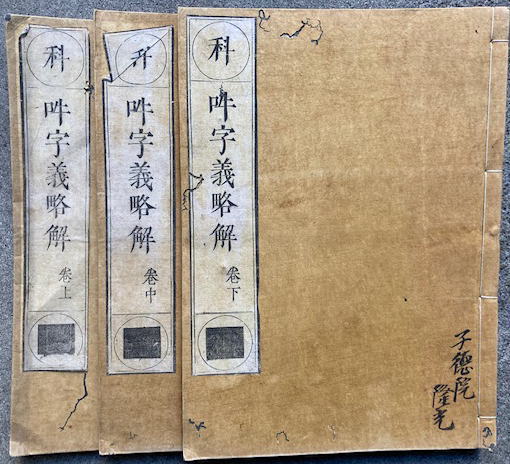 子德院
隆光
科 吽字義略解 卷下
科 吽字義略解 卷中
科 吽字義略解 卷上